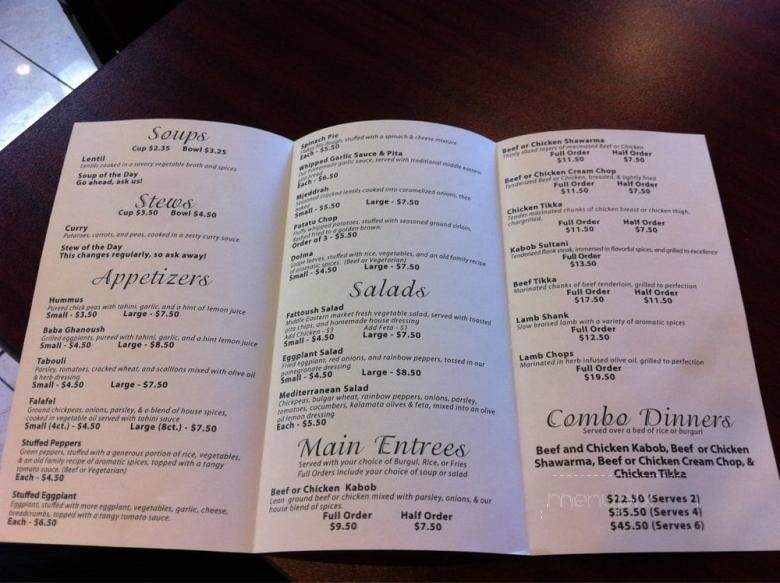 Soups
Cup $2.35 Bowl $3.25
Lentil
Lentils cooked in a savory vegetable broth and spices
Soup of the Day
Go ahead, ask us!
Stews
Cup $3.50 Bowl $4.50
Curry
Potatoes, carrots, and peas, cooked in a zesty curry sauce
Stew of the Day
This changes regularly, so ask away!
Appetizers
Hummus
Pureed chick peas with tahini, garlic, and a hint of lemon juice
Small - $3.50 Large - $7.50
Baba Ghanoush
Grilled eggplants, pureed with tahini, garlic, and a hint lemon juice
Small - $4.50 Large - $8.50
Tabouli
Parsley, tomatoes, cracked wheat, and scallions mixed with olive oil
& herb dressing
Small - $4.50 Large - $7.50
Falafel
Ground chickpeas, onions, parsley, & a blend of house spices,
cooked in vegetable oil served with tahini sauce
Small (4ct.) - $4.50 Large (8ct.) - $7.50
Stuffed Peppers
Green peppers, stuffed with a generous portion of rice, vegetables,
& an old family recipe of aromatic spices, topped with a tangy
tomato sauce. (Beef or Vegetarian)
Each - $4.50
Stuffed Eggplant
Eggplant, stuffed with more eggplant, vegetables, garlic, cheese,
breadcrumbs, topped with a tangy tomato sauce.
Each - $6.50
Spinach Pie
dough, stuffed with a spinach & cheese mixture
Each - $5.50
Whipped Garlic Sauce & Pita
Our homemade garlic sauce, served with traditional middle eastern
pita bread
Each - $6.50
Mjeddrah
Seasoned cracked lentils cooked into caramelized onions, then
baked
Small - $5.50 Large - $7.50
Potato Chop
Fluffy whipped potatoes, stuffed with seasoned ground sirloin,
flashed fried to a golden brown.
Order of 3 - $5.50
Dolma
Grape leaves, stuffed with rice, vegetables, and an old family recipe
of aromatic spices. (Beef or Vegetarian)
Small - $4.50 Large - $7.50
Salads
Fattoush Salad
Middle Eastern market fresh vegetable salad, served with toasted
pita chips, and homemade house dressing
Add Chicken - $3 Add Feta - $1
Small - $4.50 Large - $7.50
Eggplant Salad
Fried eggplant, red onions, and rainbow peppers, tossed in our
pomegranate dressing
Small - $4.50 Large - $8.50
Mediterranean Salad
Chickpeas, bulgar wheat, rainbow peppers, onions, parsley,
tomatoes, cucumbers, kalamata olives & feta, mixed into an olive
oil lemon dressing
Each - $5.50
Main Entrees
Served with your choice of Burgul, Rice, or Fries
Full Orders Include your choice of soup or salad
Beef or Chicken Kabob
Lean ground beef or chicken mixed with parsley, onions, & our
house blend of spices.
Full Order Half Order
$9.50 $7.50
Beef or Chicken Shawarma
Thinly sliced layers of marinated Beef or Chicken
Full Order Half Order
$11.50 $7.50
Beef or Chicken Cream Chop
Tenderized Beef or Chicken, breaded, & lightly fried
Full Order Half Order
$11.50 $7.50
Chicken Tikka
Tender marinated chunks of chicken breast or chicken thigh,
chargrilled.
Full Order Half Order
$11.50 $7.50
Kabob Sultani
Tenderized flank steak, immersed in flavorful spices, and grilled to excellence
Full Order
$13.50
Beef Tikka
Marinated chunks of beef tenderloin, grilled to perfection
Full Order Half Order
$17.50 $11.50
Lamb Shank
Slow broised lamb with a variety of aromatic spices
Full Order
$12.50
Lamb Chops
Marinated in herb infused olive oil, grilled to perfection
Full Order
$19.50
Combo Dinners
Served over a bed of rice or burgurl
Beef and Chicken Kabob, Beef or Chicken
Shawarma, Beef or Chicken Cream Chop, &
Chicken Tikka
$22.50 (Serves 2)
$35.50 (Serves 4)
$45.50 (Serves 6)